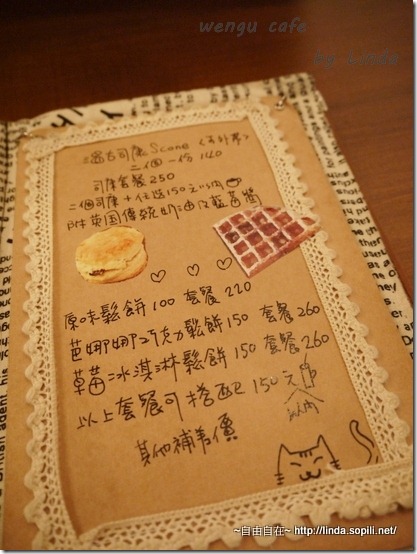 wengu cafe
by Linda
溫古司康Scone (可外帶)
二個一份 140
司康套餐 250
二個司康+任選150元以內
附英国傳統奶油及藍莓醬
原味鬆餅 100 套餐 220
芭娜娜巧克力鬆餅 150 套餐 260
草莓冰淇淋鬆餅 150 套餐 260
以上套餐可搭配 150元
以內
其他補差價
~自由自在~ http://linda.sopili.net/